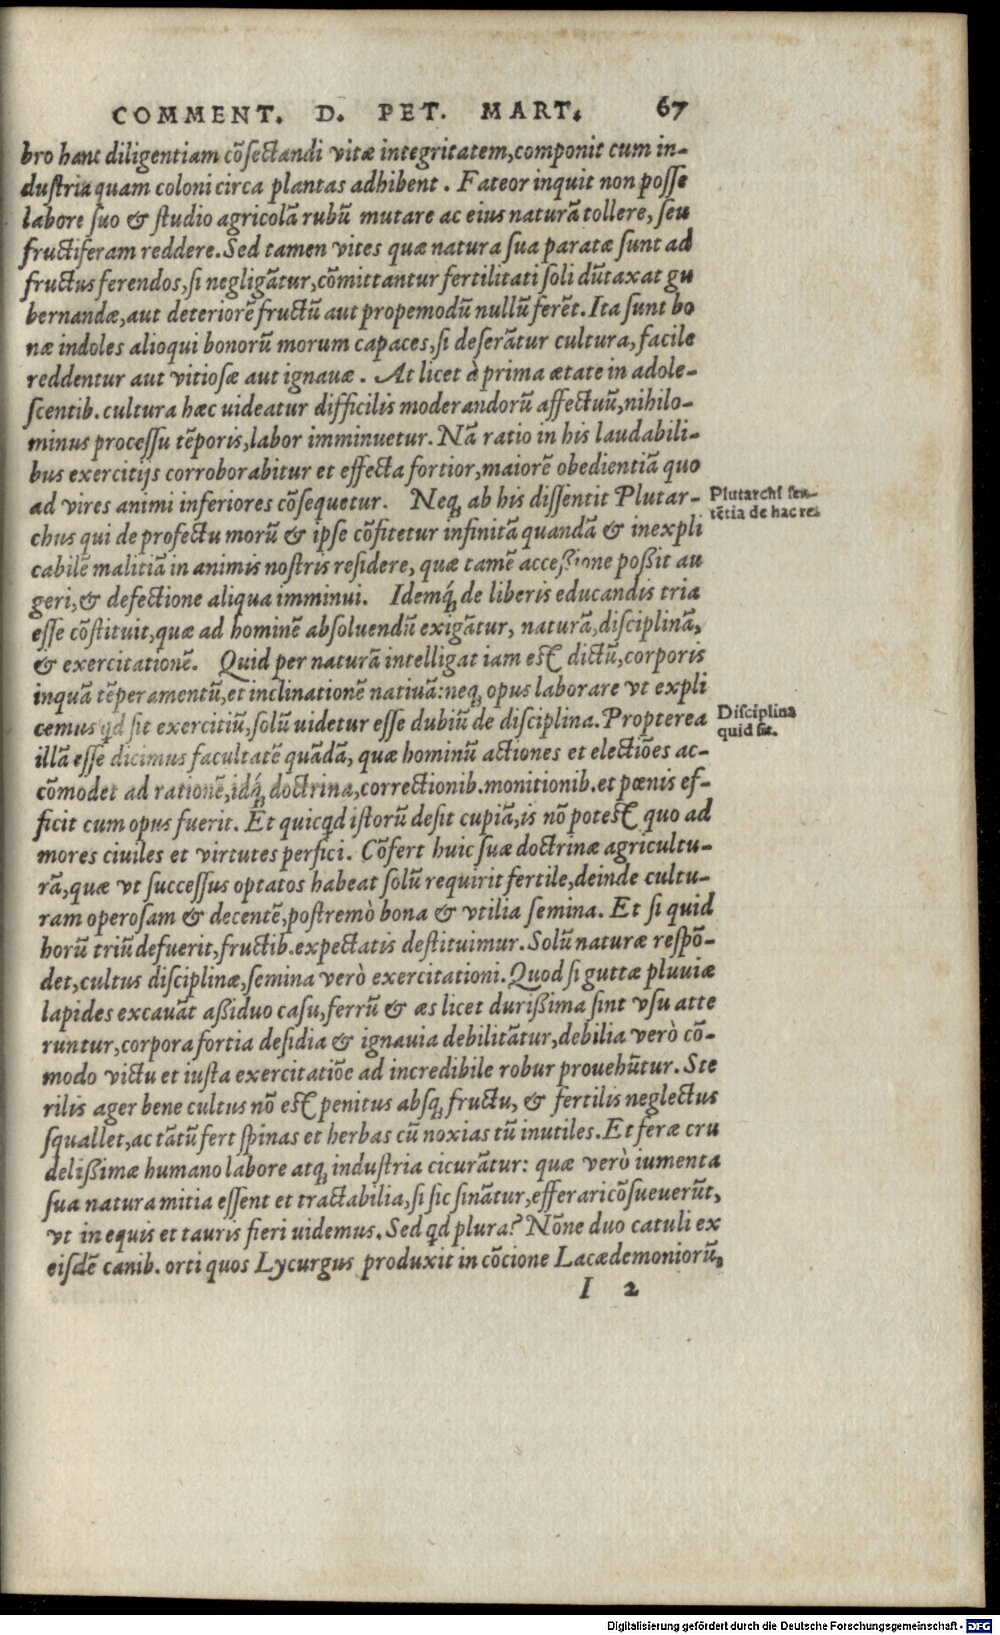 COMMENT. D. PET. MART. 67
bro hanc diligentiam cõsectandi vitæ integritatem, componit cum in-
dustria quam coloni circa plantas adhibent. Fateor inquit non posse
labore suo & studio agricolã rubũ mutare ac eius naturã tollere, seu
fructiferam reddere. Sed tamen vites quæ natura sua paratæ sunt ad
fructus ferendos, si negligãtur, cõmittantur fertilitati soli dũtaxat gu
bernandæ, aut deteriorẽ fructũ aut propemodũ nullũ ferẽt. Ita sunt bo
næ indoles alioqui bonorũ morum capaces, si deserãtur cultura, facile
reddentur aut vitiosæ aut ignauæ. At licet à prima ætate in adole-
scentib. cultura hæc uideatur difficilis moderandorũ affectuũ, nihilo-
minus processu tẽporis, labor imminuetur. Nã ratio in his laudabili-
bus exercitijs corroborabitur et effecta fortior, maiorẽ obedientiã quo
ad vires animi inferiores cõsequetur. Neq; ab his dissentit Plutar-
Plutarchi sen-
chus qui de profectu morũ & ipse cõfitetur infinitã quandã & inexpli
tẽtia de hac re.
cabilẽ malitiã in animis nostris residere, quæ tamẽ acceßione poßit au
geri, & defectione aliqua imminui. Idemq́; de liberis educandis tria
esse cõstituit, quæ ad hominẽ absoluendũ exigãtur, naturã, disciplinã,
& exercitationẽ. Quid per naturã intelligat iam est dictũ, corporis
inquã tẽperamentũ, et inclinationẽ natiuã: neq; opus laborare vt expli
cemus qd sit exercitiũ, solũ uidetur esse dubiũ de disciplina. Propterea
Disciplina
quid sit.
illã esse dicimus facultatẽ quãdã, quæ hominũ actiones et electiões ac-
cõmodet ad rationẽ, idq́; doctrina, correctionib. monitionib. et pœnis ef-
ficit cum opus fuerit. Et quicqd istorũ desit cupiã, is nõ potest quo ad
mores ciuiles et virtutes perfici. Cõfert huic suæ doctrinæ agricultu-
rã, quæ vt successus optatos habeat solũ requirit fertile, deinde cultu-
ram operosam & decentẽ, postremò bona & vtilia semina. Et si quid
horũ triũ defuerit, fructib. expectatis destituimur. Solũ naturæ respõ-
det, cultus disciplinæ, semina verò exercitationi. Quod si guttæ pluuiæ
lapides excauãt aßiduo casu, ferrũ & æs licet durißima sint vsu atte
runtur, corpora fortia desidia & ignauia debilitãtur, debilia verò cõ-
modo victu et iusta exercitatiõe ad incredibile robur prouehũtur. Ste
rilis ager bene cultus nõ est penitus absq; fructu, & fertilis neglectus
squallet, ac tãtũ fert spinas et herbas cũ noxias tũ inutiles. Et feræ cru
delißimæ humano labore atq; industria cicurãtur: quæ verò iumenta
sua natura mitia essent et tractabilia, si sic sinãtur, efferari cõsueuerũt,
vt in equis et tauris fieri uidemus. Sed qd plura? Nõne duo catuli ex
eisdẽ canib. orti quos Lycurgus produxit in cõcione Lacædemoniorũ,
I 2
Digitalisierung gefördert durch die Deutsche Forschungsgemeinschaft - DFG